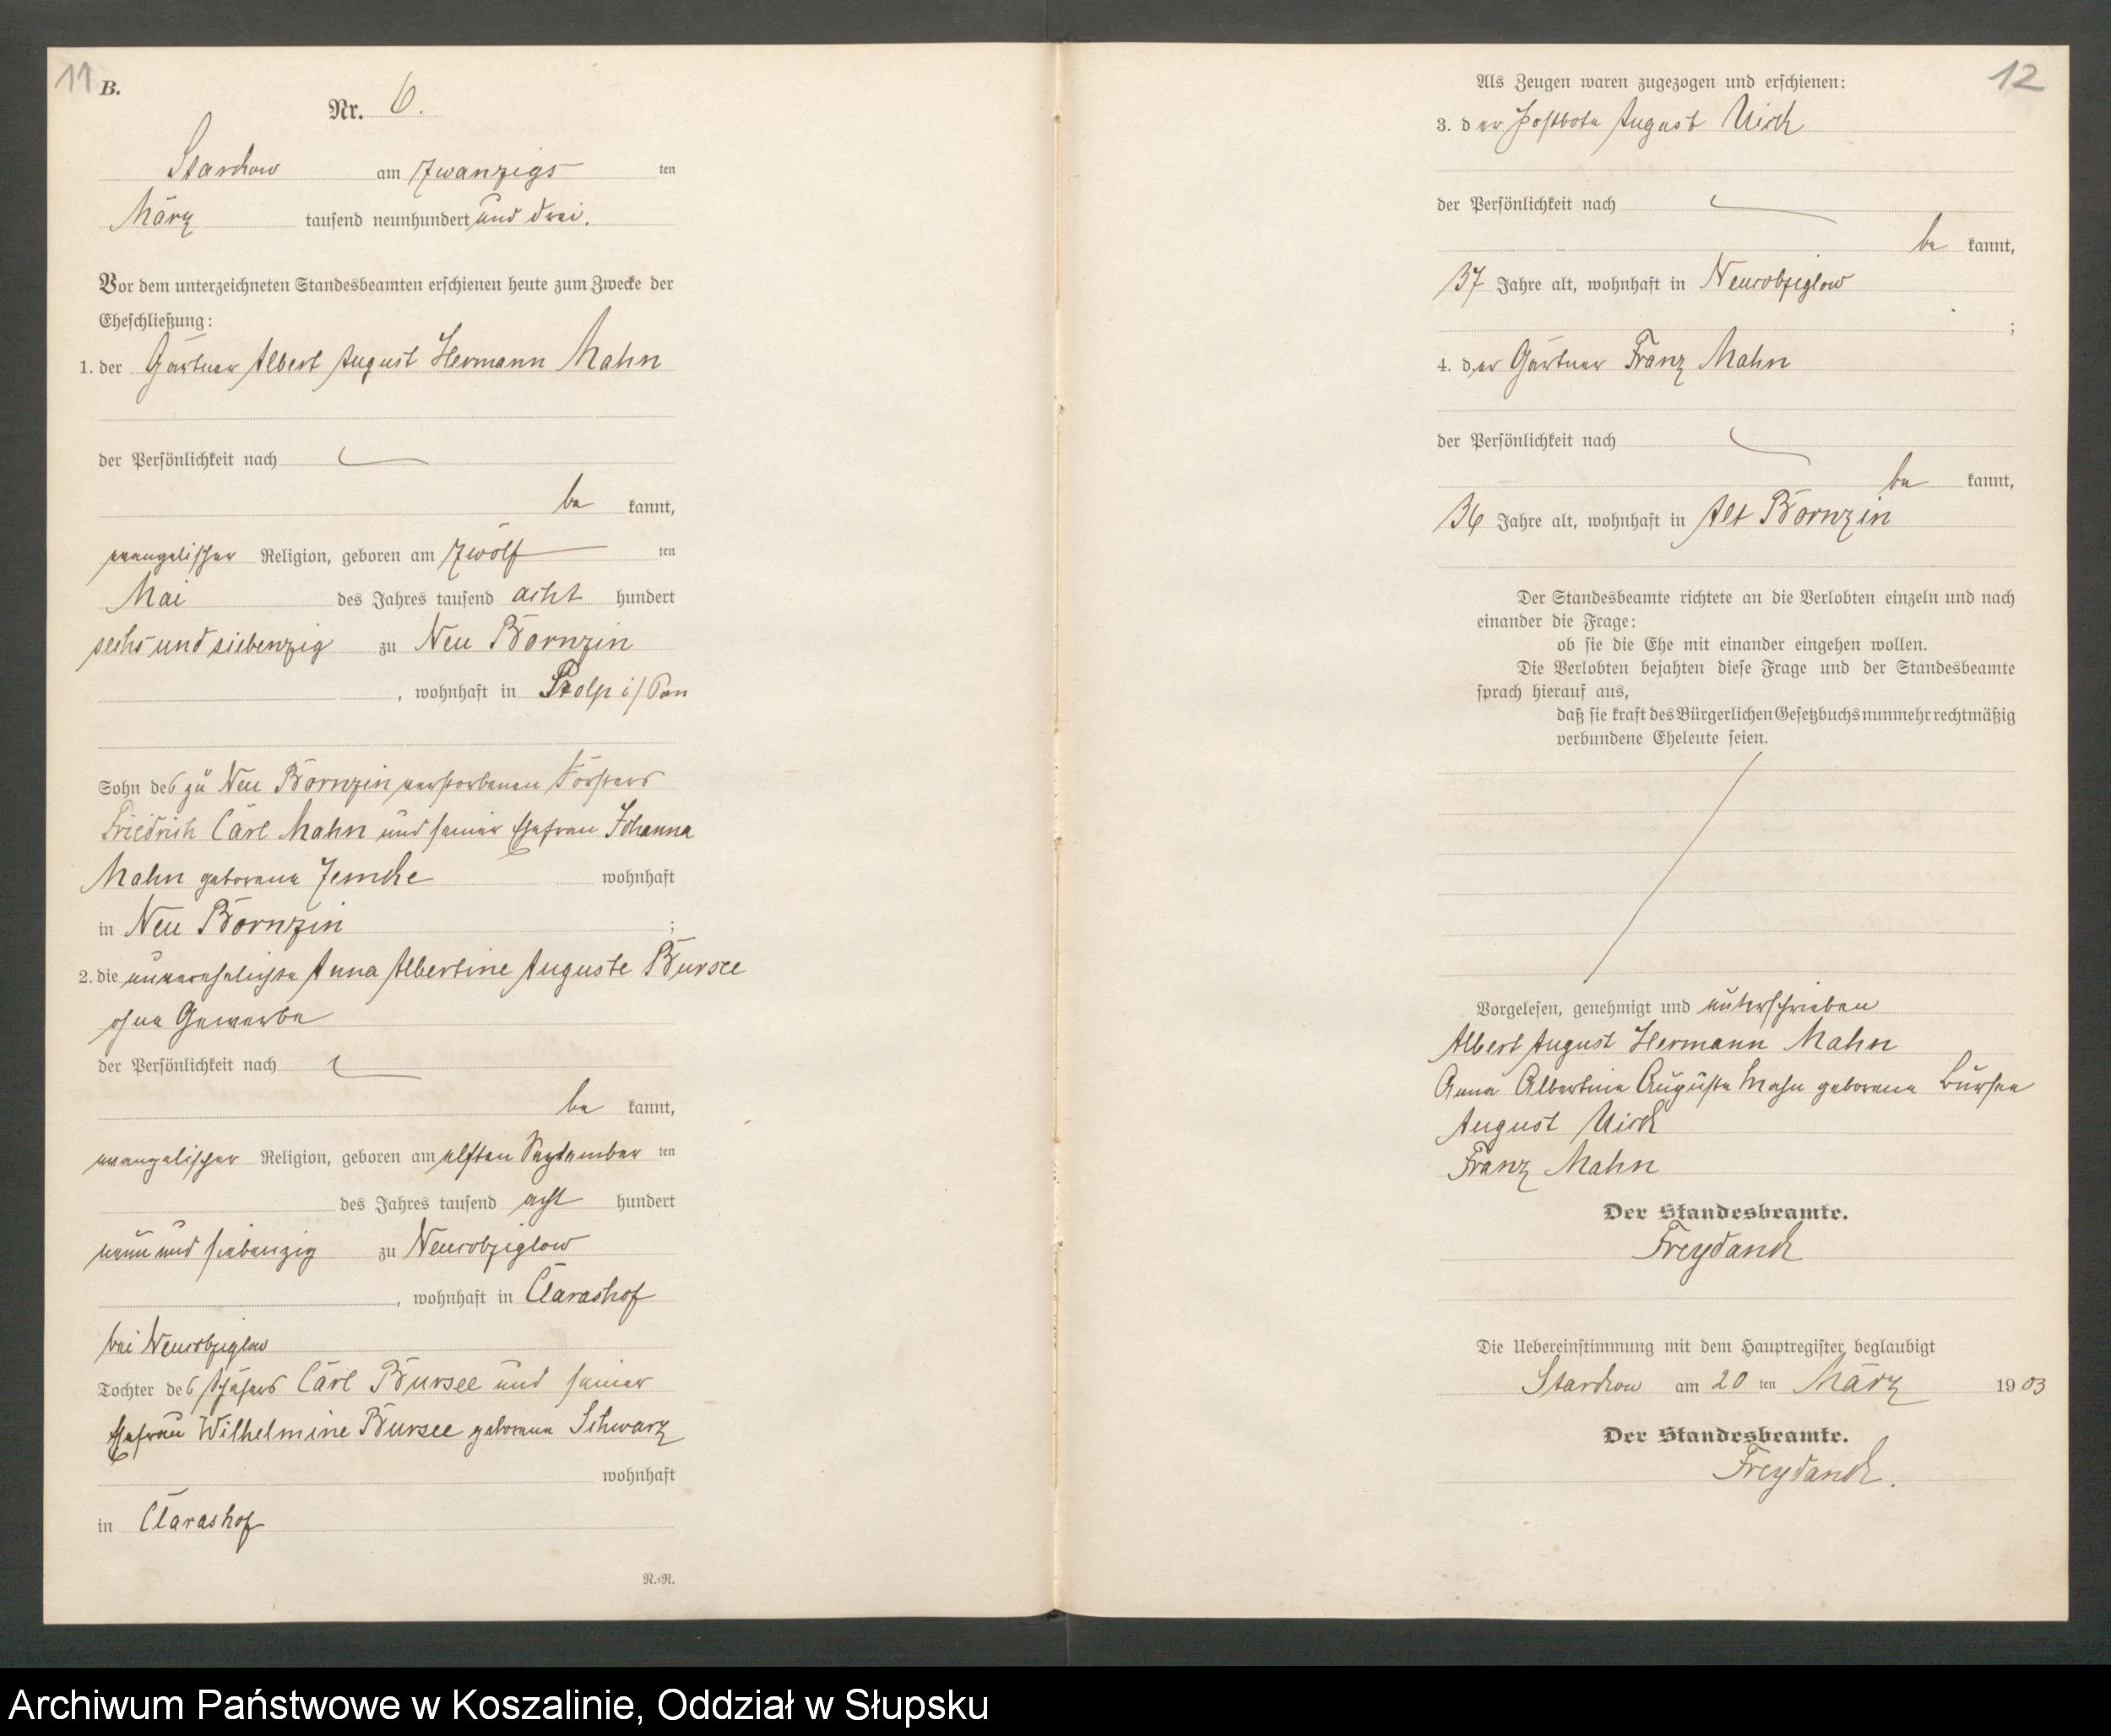 11
B.
Nr. 6.
Starckow am zwanzigs ten
März tausend neunhundert und drei.
Vor dem unterzeichneten Standesbeamten erschienen heute zum Zwecke der
Eheschließung:
1. der Gärtner Albert August Hermann Mahn
der Persönlichkeit nach
be kannt,
evangelischer Religion, geboren am zwölf ten
Mai des Jahres tausend acht hundert
sechs und siebenzig zu Neu Bornzin
, wohnhaft in Stolp i/Pom
Sohn des zu Neu Bornzin verstorbenen Försters
Friedrich Carl Mahn und seiner Ehefrau Johanna
Mahn geborene wohnhaft
in Neu Bornzin ;
2. die unverehelichte Anna Albertine Auguste Bursee
ohne Gewerbe
der Persönlichkeit nach
be kannt,
evangelischer Religion, geboren am elften September ten
des Jahres tausend acht hundert
neun und siebenzig zu Neucobziglow
, wohnhaft in Clarashof
bei Neucobziglow
Tochter des Schäfers Carl Bursee und seiner
Ehefrau Wilhelmine Bursee geborene Schwarz
wohnhaft
in Clarashof
R.=R.
12
Als Zeugen waren zugezogen und erschienen:
3. der Postbote August
der Persönlichkeit nach
be kannt,
37 Jahre alt, wohnhaft in Neucobziglow
;
4. der Gärtner Franz Mahn
der Persönlichkeit nach
be kannt,
36 Jahre alt, wohnhaft in Alt Bornzin
Der Standesbeamte richtete an die Verlobten einzeln und nach
einander die Frage:
ob sie die Ehe mit einander eingehen wollen.
Die Verlobten bejahten diese Frage und der Standesbeamte
sprach hierauf aus,
daß sie kraft des Bürgerlichen Gesetzbuchs nunmehr rechtmäßig
verbundene Eheleute seien.
Vorgelesen, genehmigt und unterschrieben
Albert August Hermann Mahn
Anna Albertine Auguste Mahn geborene Bursee
August
Franz Mahn
Der Standesbeamte.
Freydanck
Die Uebereinstimmung mit dem Hauptregister beglaubigt
Starckow am 20 ten März 1903
Der Standesbeamte.
Freydanck.
Archiwum Państwowe w Koszalinie, Oddział w Słupsku